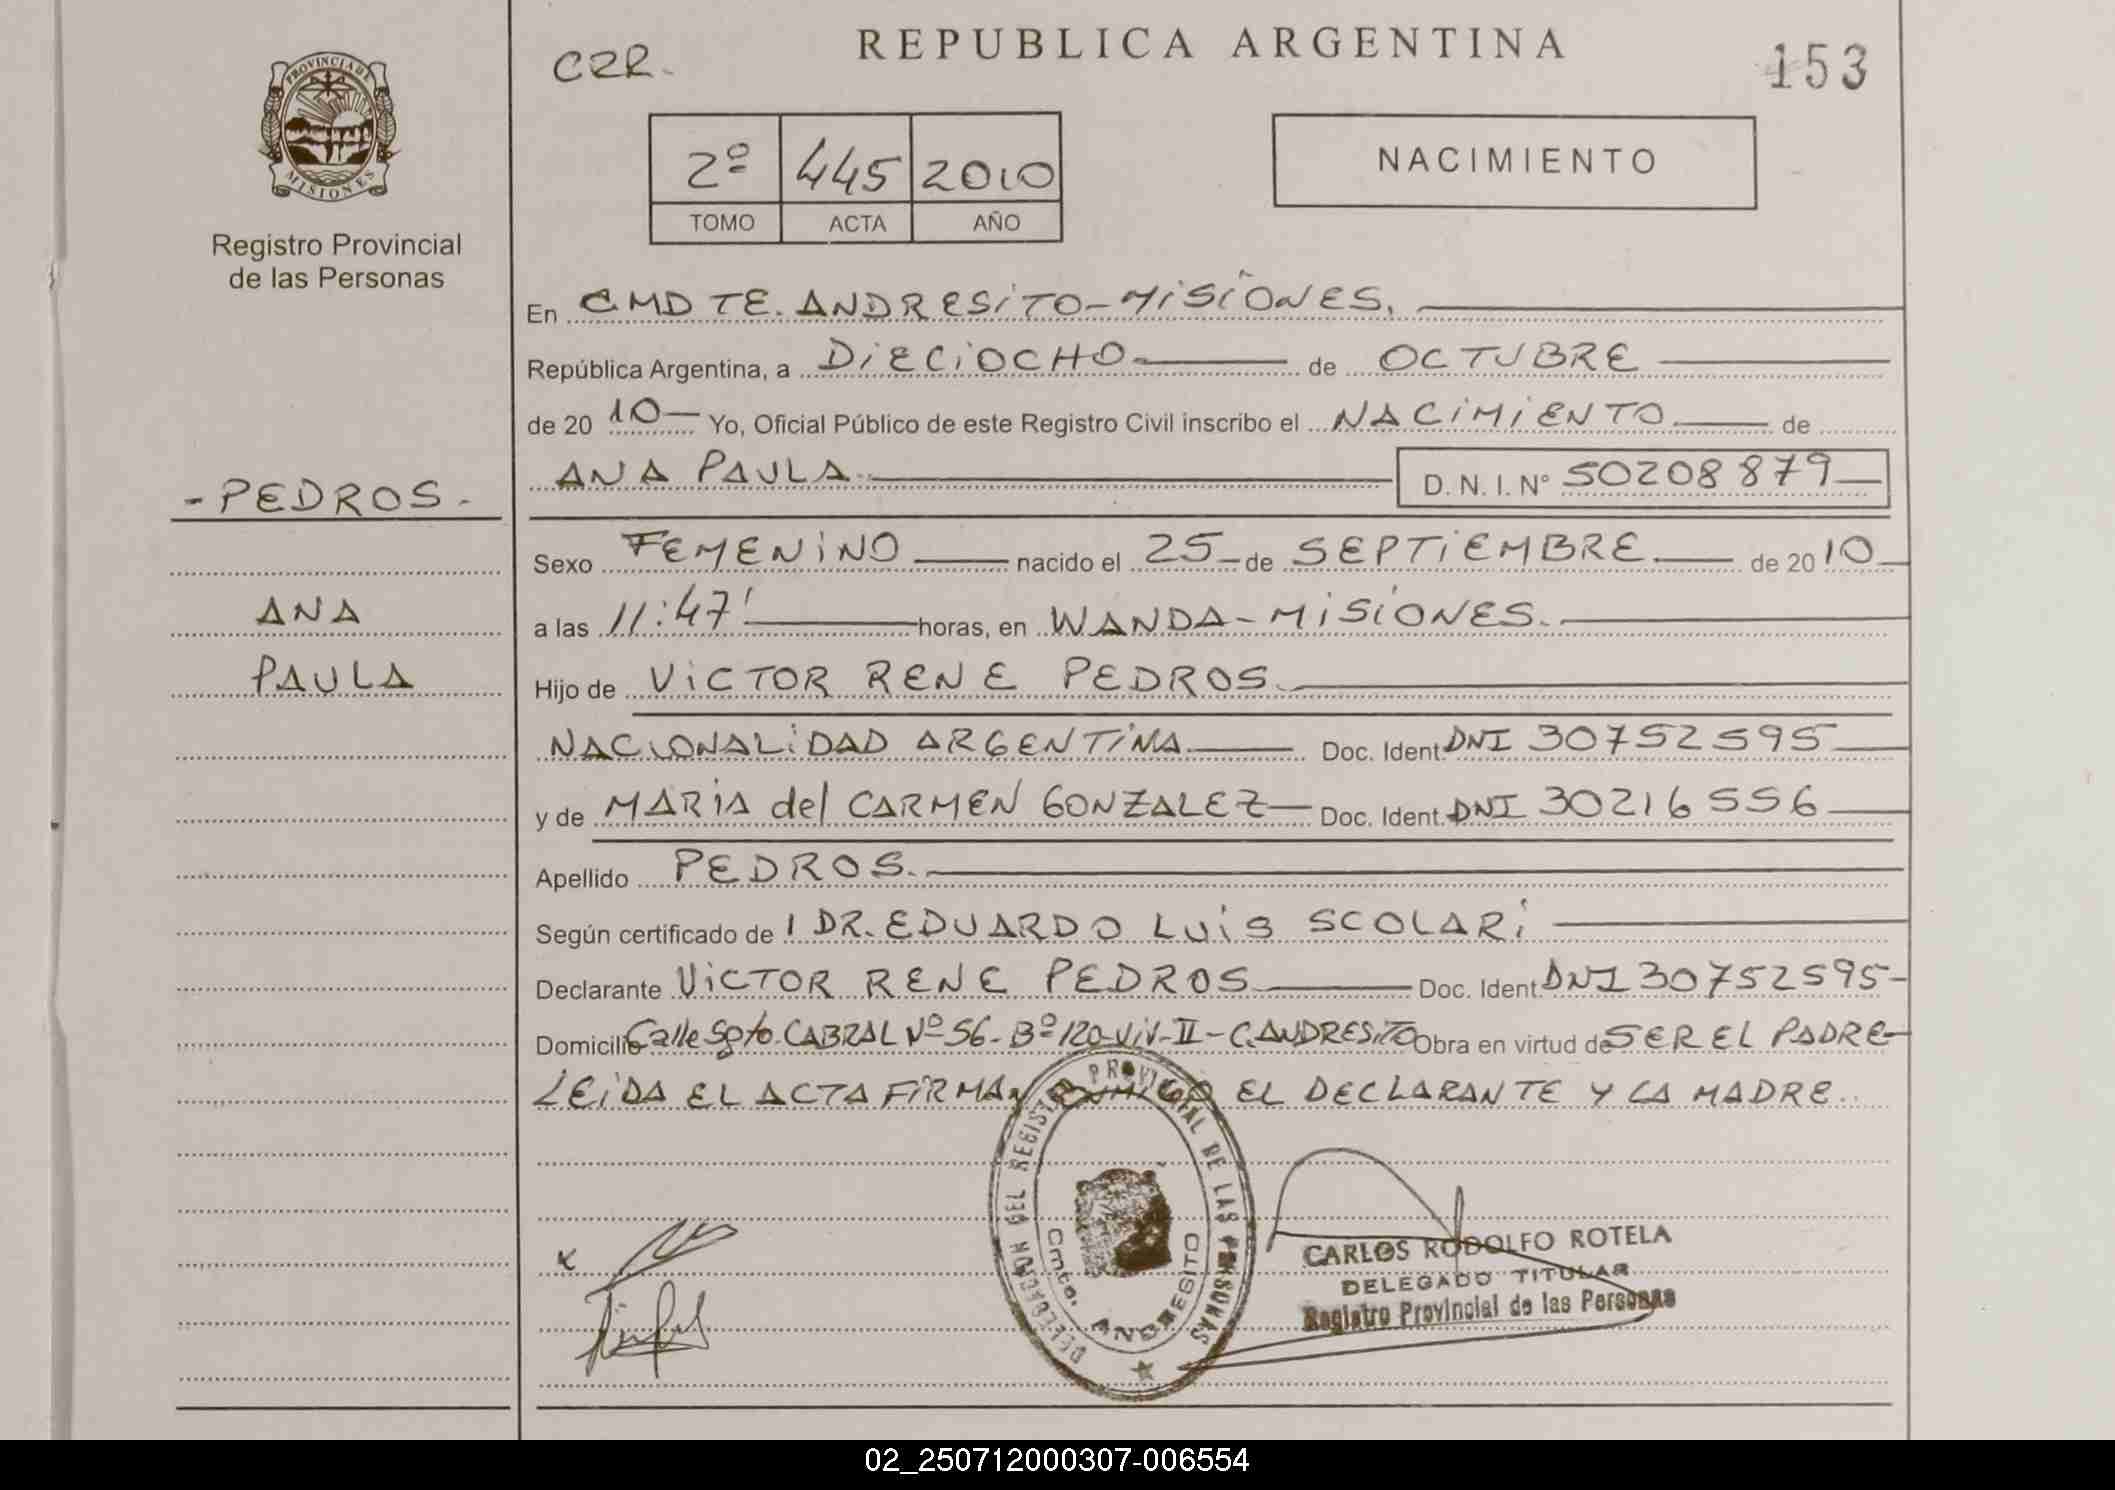 C2R.
REPUBLICA ARGENTINA
153
PROVINCIA DE
MISIONES
Registro Provincial
de las Personas
2º 445 2010
TOMO ACTA AÑO
NACIMIENTO
En CMDTE. ANDRESITO-MISIONES.
República Argentina, a DIECIOCHO de OCTUBRE
de 20 10 Yo, Oficial Público de este Registro Civil inscribo el NACIMIENTO de
ANA PAULA D. N. I. Nº 50208879
- PEDROS -
ANA
PAULA
Sexo FEMENINO nacido el 25 de SEPTIEMBRE de 2010
a las 11:47' horas, en WANDA-MISIONES.
Hijo de VICTOR RENE PEDROS
NACIONALIDAD ARGENTINA Doc. Ident. DNI 30752595
y de MARIA del CARMEN GONZALEZ Doc. Ident. DNI 30216556
Apellido PEDROS.
Según certificado de l DR. EDUARDO LUIS SCOLARI
Declarante VICTOR RENE PEDROS Doc. Ident. DNI 30752595-
Domicilio Calle Sgto. CABRAL Nº 56- Bº 120-Viv-II-C. ANDRESITO Obra en virtud de SER EL PADRE-
LEIDA EL ACTA FIRMAN CONMIGO EL DECLARANTE Y LA MADRE.
DELEGACION DEL REGISTRO PROVINCIAL DE LAS PERSONAS
Cmte. ANDRESITO
CARLOS RODOLFO ROTELA
DELEGADO TITULAR
Registro Provincial de las Personas
02_250712000307-006554